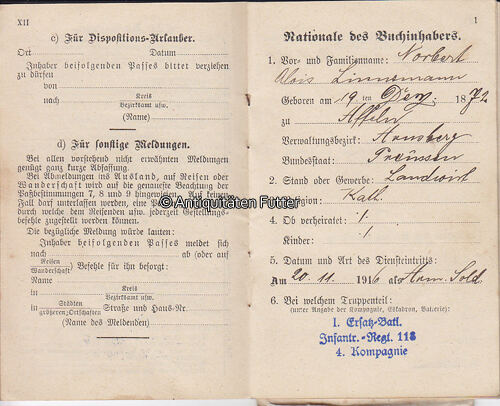 XII
c) Für Dispositions-Urlauber.
Ort Datum
Inhaber beifolgenden Passes bittet verziehen
zu dürfen
von
nach Kreis
Bezirksamt usw.
(Name)
d) Für sonstige Meldungen.
Bei allen vorstehend nicht erwähnten Meldungen
genügt ganz kurze Abfassung.
Bei Abmeldungen ins Ausland, auf Reisen oder
Wanderschaft wird auf die genaueste Beachtung der
Paßbestimmungen 7, 8 und 9 hingewiesen. Auf keinen
Fall darf unterlassen werden, eine
durch welche dem Reisenden usw. jederzeit Gestellungs-
befehle zugestellt werden können.
Die bezügliche Meldung würde lauten:
Inhaber beifolgenden Passes meldet sich
nach ab (oder auf
Reisen
Wanderschaft) Befehle für ihn besorgt:
Name
in Kreis
Bezirksamt usw.
in Städten
größeren Ortschaften Straße und Haus-Nr.
(Name des Meldenden)
© Antiquitäten Futter
1
Nationale des Buchinhabers.
1. Vor- und Familienname: Norbert
Alois Linnemann
Geboren am 19 ten Dez. 1872
zu Affeln
Verwaltungsbezirk: Arnsberg
Bundesstaat: Preussen
2. Stand oder Gewerbe: Landwirt
Religion: Kath.
4. Ob verheiratet: ./.
Kinder: ./.
5. Datum und Art des Diensteintritts:
Am 20. 11. 1916 als Arm. Sold.
6. Bei welchem Truppenteil:
(unter Angabe der Kompagnie, Eskadron, Batterie):
I. Ersatz-Batl.
Infantr.-Regt. 118
4. Kompagnie